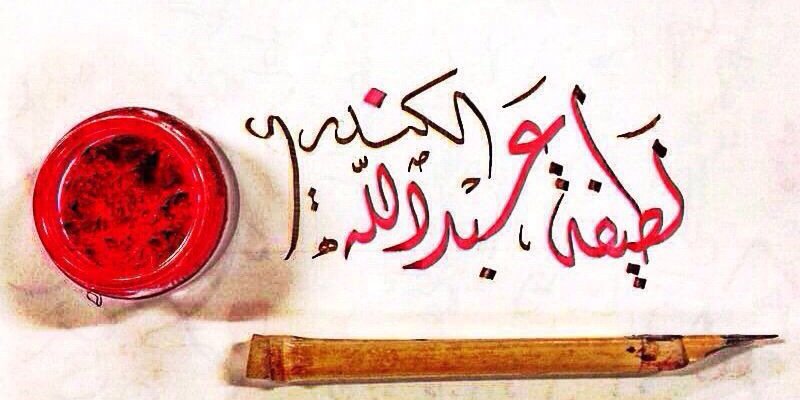 لطيفة عبدالله الكندري